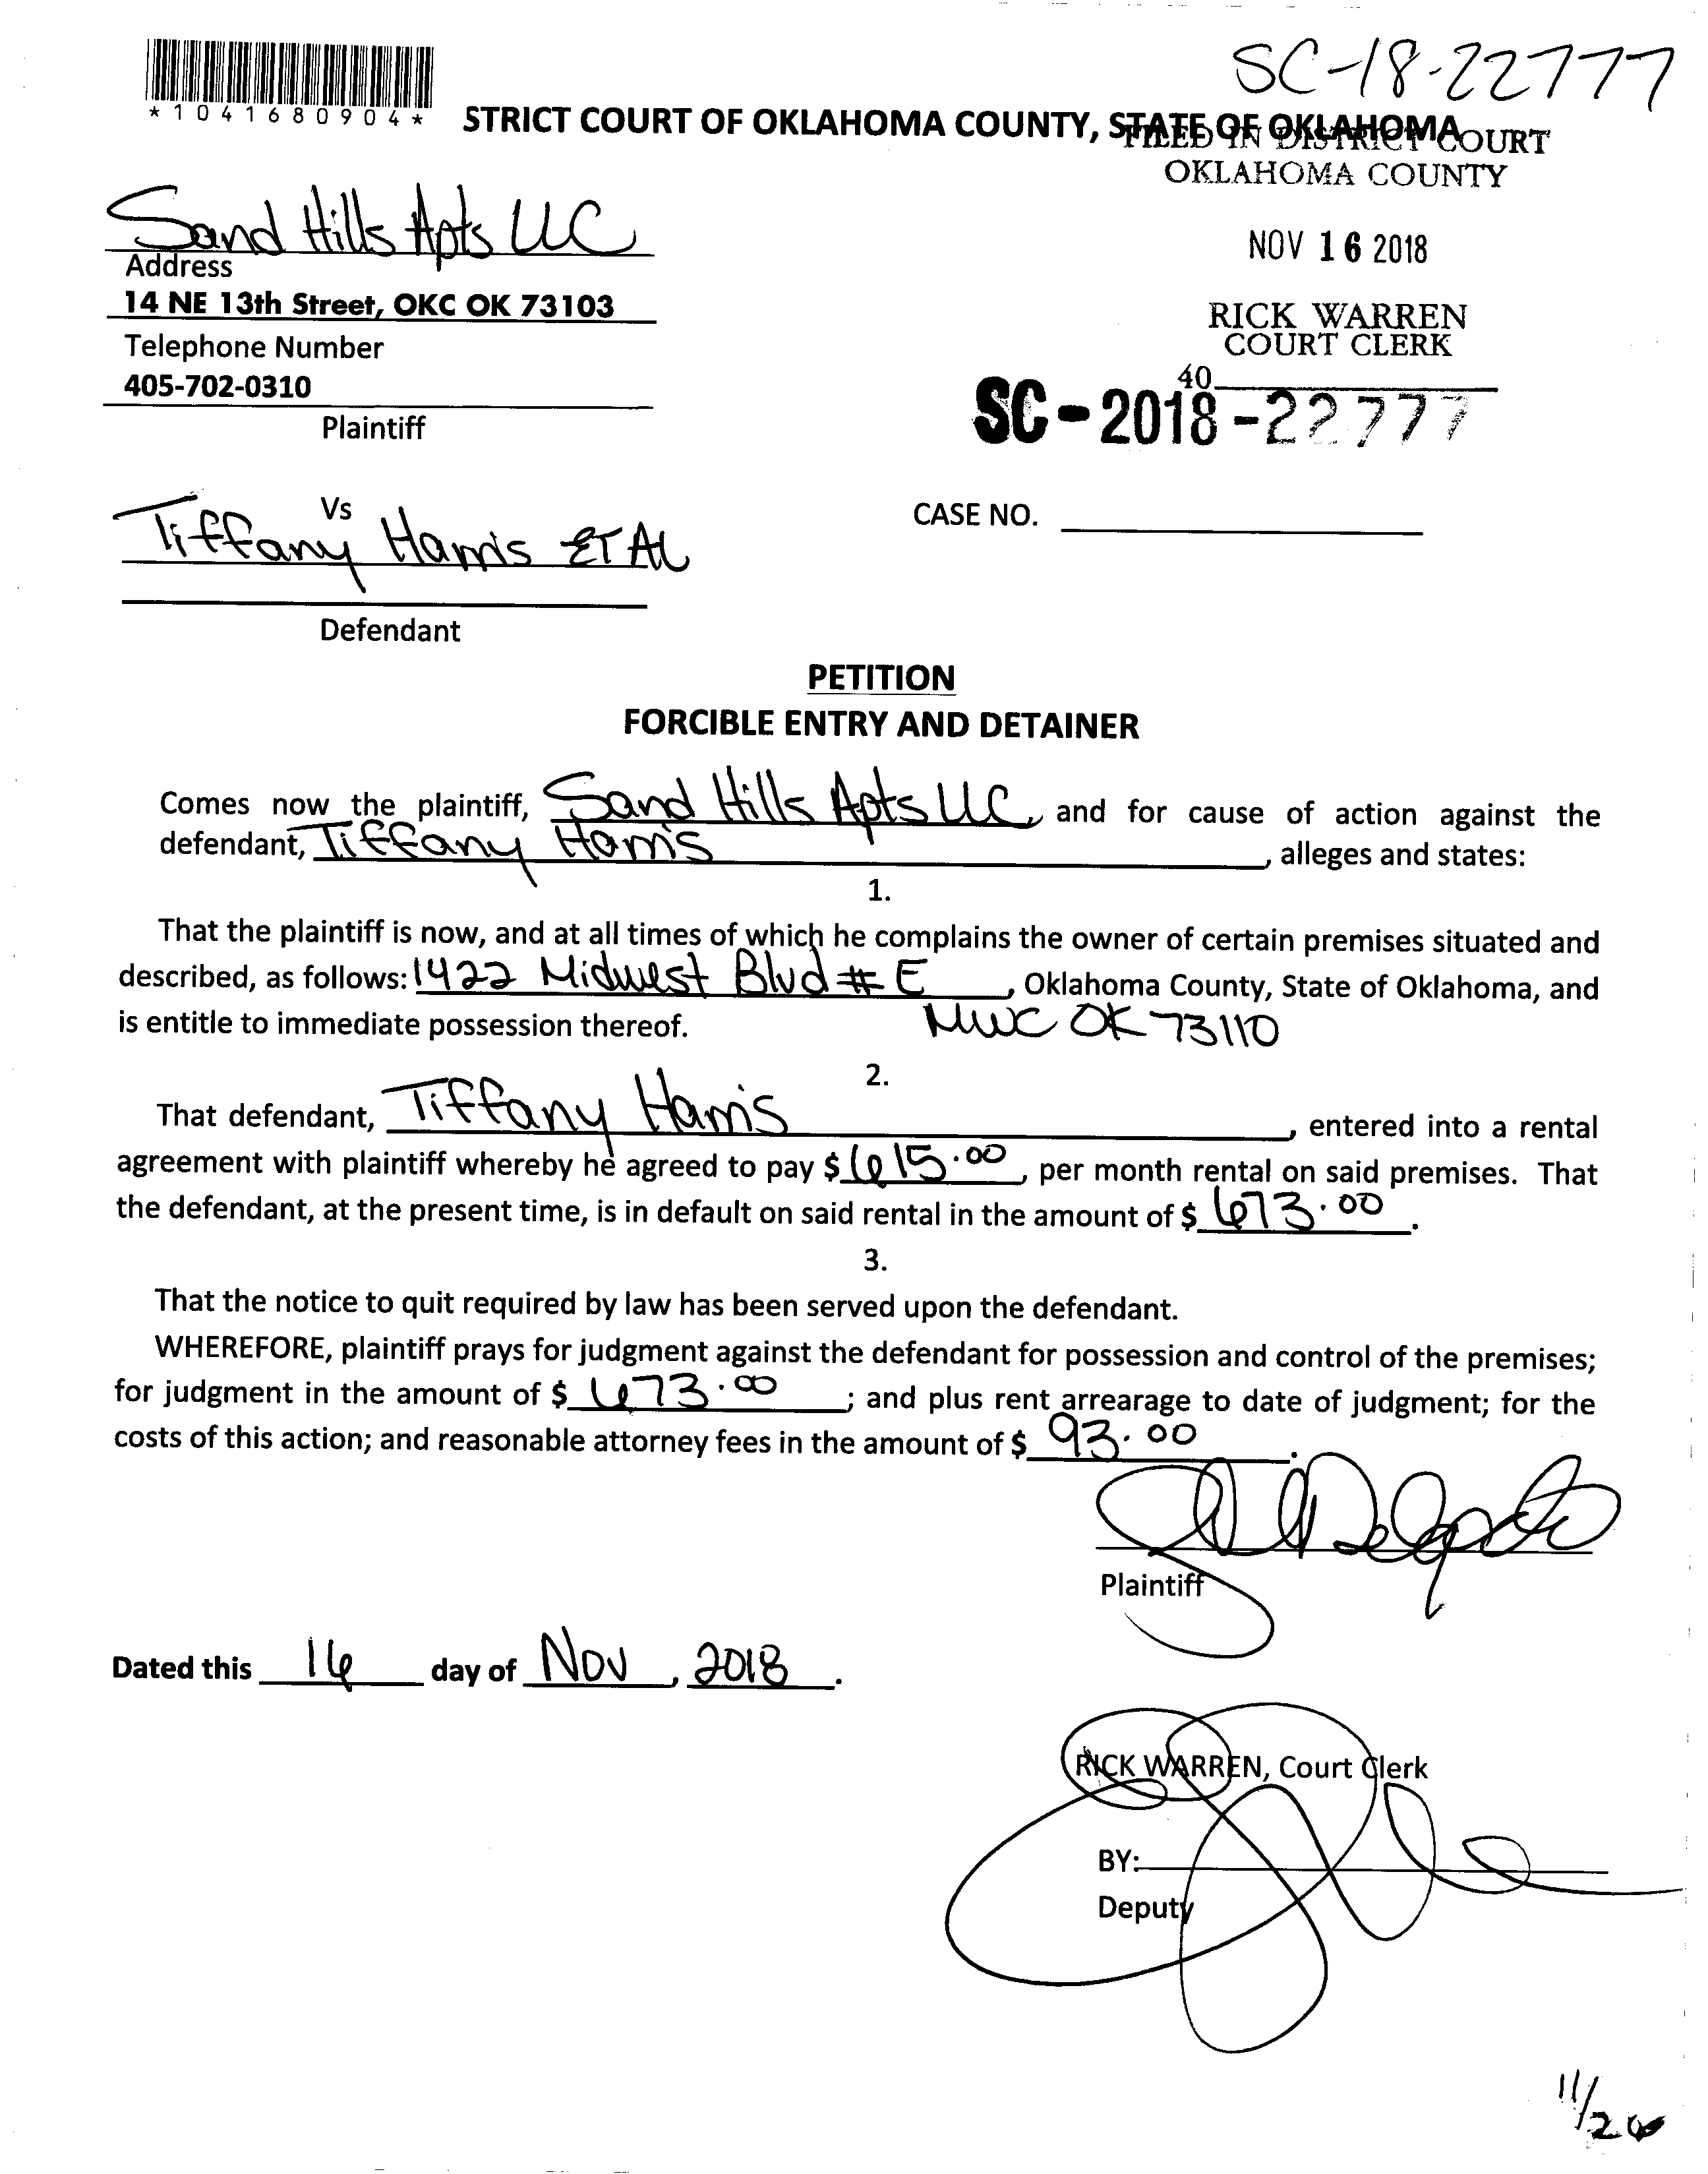 SC-18-22777
*1041680904*
STRICT COURT OF OKLAHOMA COUNTY, STATE OF OKLAHOMA
FILED IN DISTRICT COURT
OKLAHOMA COUNTY
Sand Hills Apts LLC
NOV 16 2018
Address
14 NE 13th Street, OKC OK 73103
RICK WARREN
COURT CLERK
Telephone Number
405-702-0310
40
SC-2018-22777
Plaintiff
Vs
CASE NO.
Tiffany Harris ET AL
Defendant
PETITION
FORCIBLE ENTRY AND DETAINER
Comes now the plaintiff, Sand Hills Apts LLC, and for cause of action against the
defendant, Tiffany Harris, alleges and states:
1.
That the plaintiff is now, and at all times of which he complains the owner of certain premises situated and
described, as follows: 1422 Midwest Blvd # E, Oklahoma County, State of Oklahoma, and
is entitle to immediate possession thereof. MWC OK 73110
2.
That defendant, Tiffany Harris, entered into a rental
agreement with plaintiff whereby he agreed to pay $ 615.00, per month rental on said premises. That
the defendant, at the present time, is in default on said rental in the amount of $ 673.00.
3.
That the notice to quit required by law has been served upon the defendant.
WHEREFORE, plaintiff prays for judgment against the defendant for possession and control of the premises;
for judgment in the amount of $ 673.00; and plus rent arrearage to date of judgment; for the
costs of this action; and reasonable attorney fees in the amount of $ 93.00.
Plaintiff
Dated this 16 day of Nov, 2018.
RICK WARREN, Court Clerk
BY:
Deputy